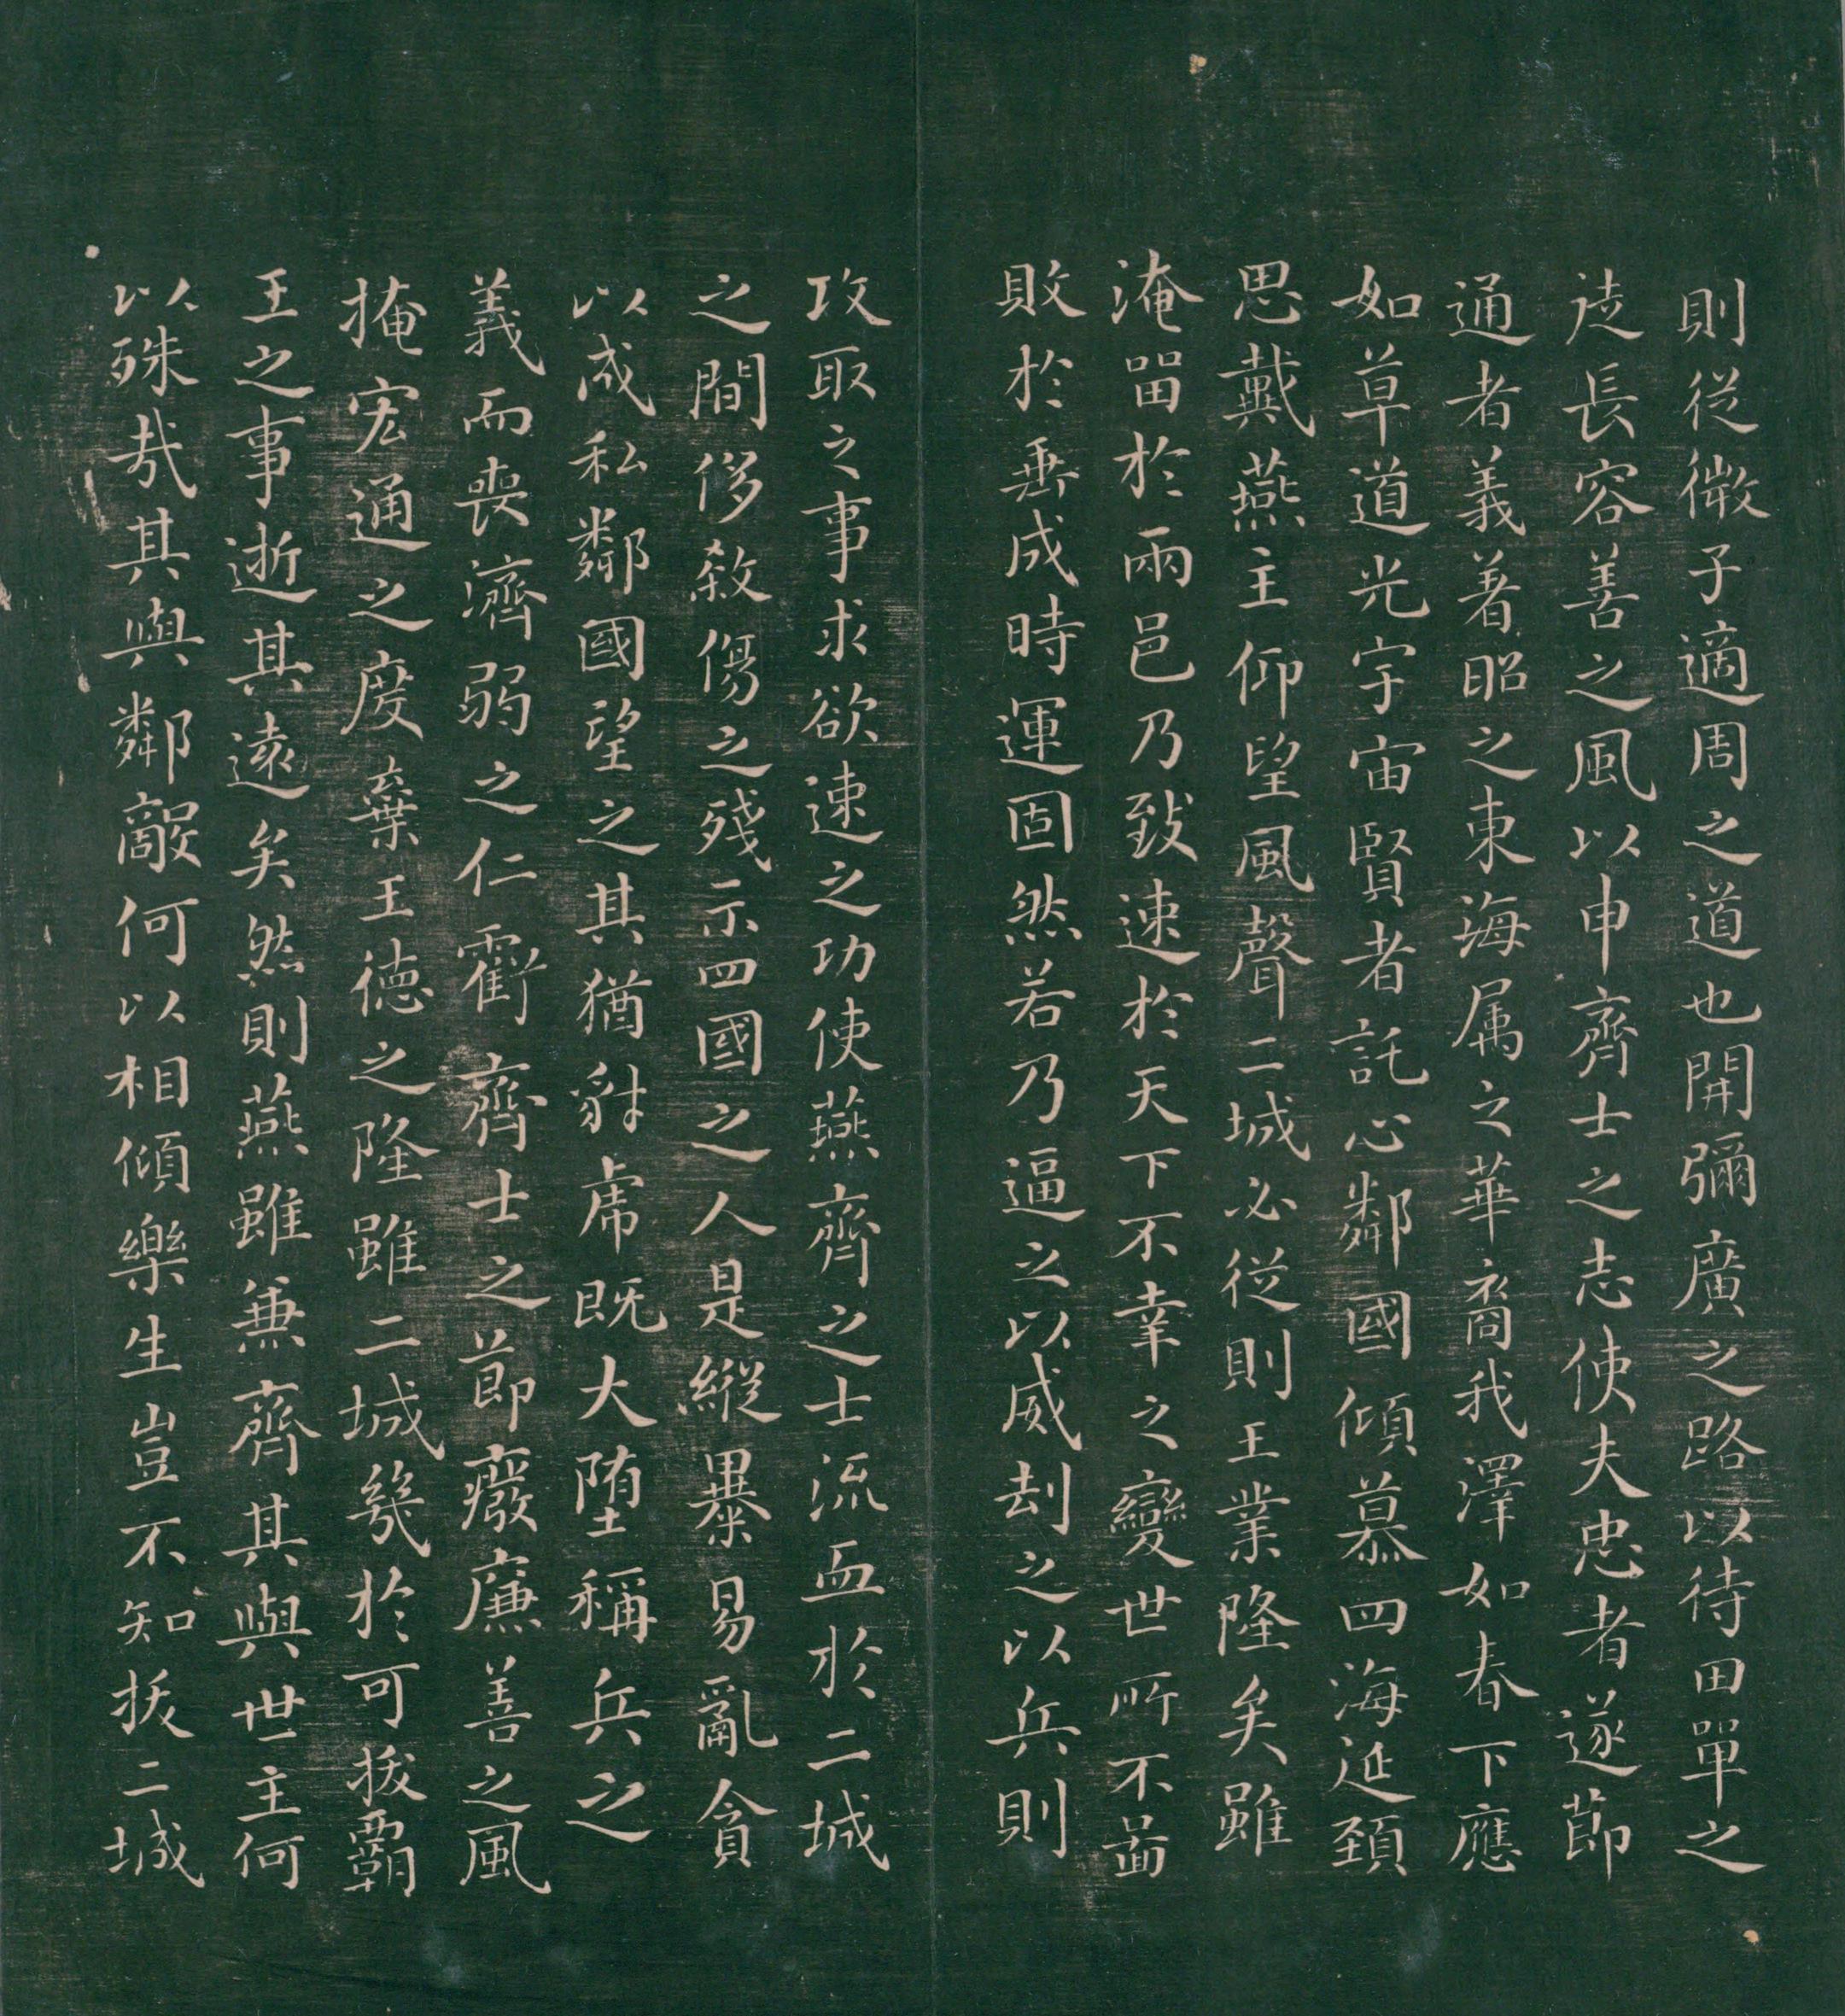 則從微子適周之道也開彌廣之路以待田單之
徒長容善之風以申齊士之志使夫忠者遂節
通者義著昭之東海属之華裔我澤如春下應
如草道光宇宙賢者託心鄰國傾慕四海延頚
思戴燕主仰望風聲二城必從則王業隆矣雖
淹留於兩邑乃致速於天下不幸之變世所不啚
敗於垂成時運固然若乃逼之以威刧之以兵則
攻取之事求欲速之功使燕齊之士流血於二城
之間侈殺傷之殘示四國之人是縱暴易亂貪
以成私鄰國望之其猶豺虎既大堕稱兵之
義而喪濟弱之仁虧齊士之節癈廉善之風
掩宏通之度棄王德之隆雖二城幾於可拔霸
王之事逝其遠矣然則燕雖兼齊其與世主何
以殊哉其與鄰敵何以相傾樂生豈不知拔二城